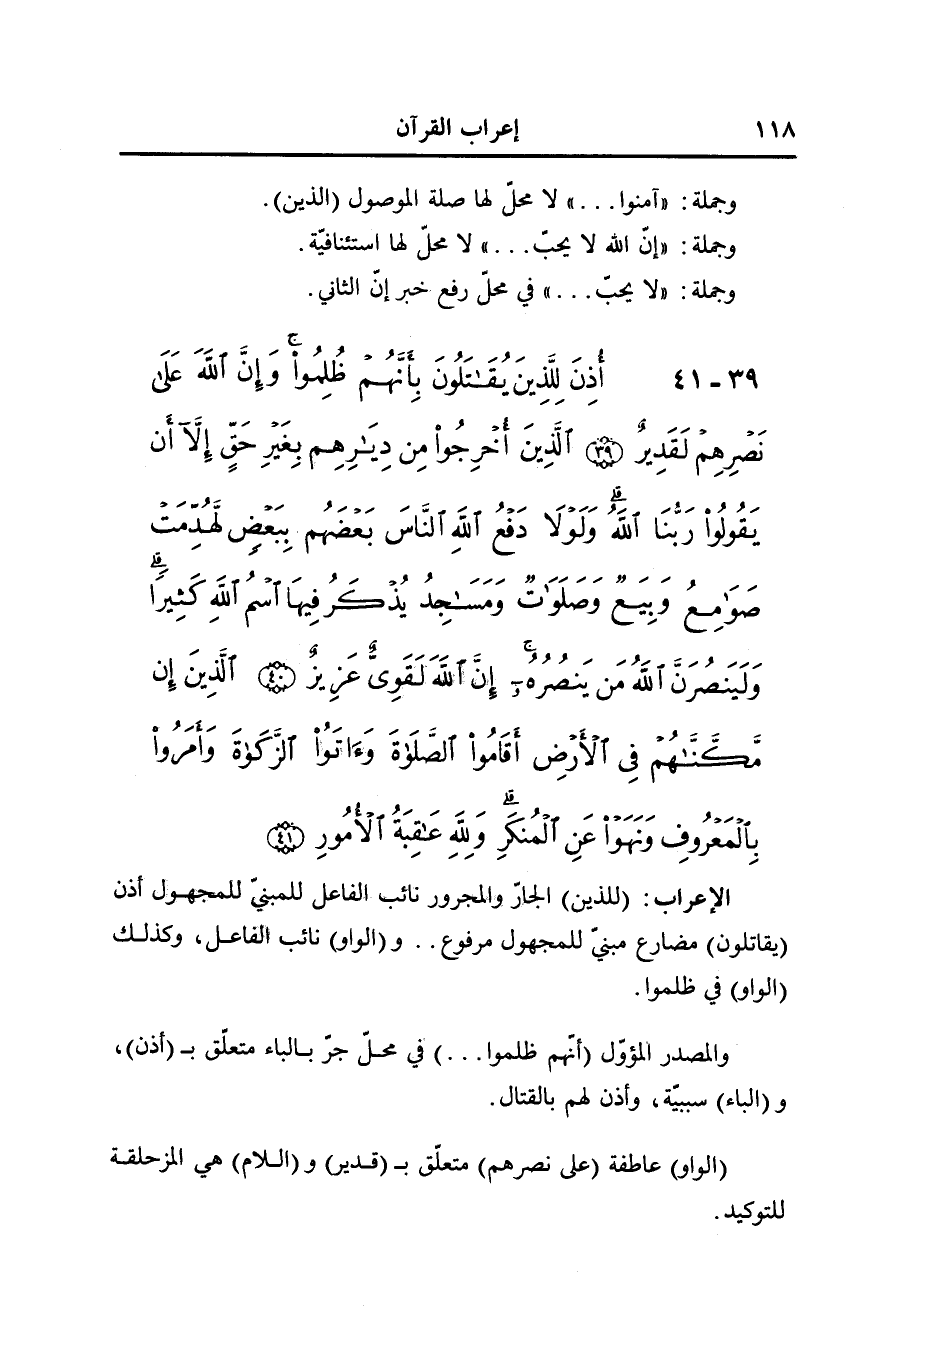 ١١٨ إعراب القرآن
وجملة: «آمنوا...» لا محلّ لها صلة الموصول (الذين).
وجملة: «إنّ الله لا يحبّ...» لا محلّ لها استئنافيّة.
وجملة: «لا يحبّ...» في محلّ رفع خبر إنّ الثاني.
٣٩ - ٤١ أُذِنَ لِلَّذِينَ يُقَـٰتَلُونَ بِأَنَّهُمْ ظُلِمُوا۟ ۚ وَإِنَّ ٱللَّهَ عَلَىٰ
نَصْرِهِمْ لَقَدِيرٌ ﴿٣٩﴾ ٱلَّذِينَ أُخْرِجُوا۟ مِن دِيَـٰرِهِم بِغَيْرِ حَقٍّ إِلَّآ أَن
يَقُولُوا۟ رَبُّنَا ٱللَّهُ ۗ وَلَوْلَا دَفْعُ ٱللَّهِ ٱلنَّاسَ بَعْضَهُم بِبَعْضٍ لَّهُدِّمَتْ
صَوَٰمِعُ وَبِيَعٌ وَصَلَوَٰتٌ وَمَسَـٰجِدُ يُذْكَرُ فِيهَا ٱسْمُ ٱللَّهِ كَثِيرًا ۗ
وَلَيَنصُرَنَّ ٱللَّهُ مَن يَنصُرُهُۥٓ ۚ إِنَّ ٱللَّهَ لَقَوِىٌّ عَزِيزٌ ﴿٤٠﴾ ٱلَّذِينَ إِن
مَّكَّنَّـٰهُمْ فِى ٱلْأَرْضِ أَقَامُوا۟ ٱلصَّلَوٰةَ وَءَاتَوُا۟ ٱلزَّكَوٰةَ وَأَمَرُوا۟
بِٱلْمَعْرُوفِ وَنَهَوْا۟ عَنِ ٱلْمُنكَرِ ۗ وَلِلَّهِ عَـٰقِبَةُ ٱلْأُمُورِ ﴿٤١﴾
الإعراب: (للذين) الجارّ والمجرور نائب الفاعل للمبنيّ للمجهول أذن
(يقاتلون) مضارع مبنيّ للمجهول مرفوع.. و(الواو) نائب الفاعل، وكذلك
(الواو) في ظلموا.
والمصدر المؤوّل (أنّهم ظلموا...) في محلّ جرّ بالباء متعلّق بـ (أذن)،
و(الباء) سببيّة، وأذن لهم بالقتال.
(الواو) عاطفة (على نصرهم) متعلّق بـ (قدير) و(اللام) هي المزحلقة
للتوكيد.